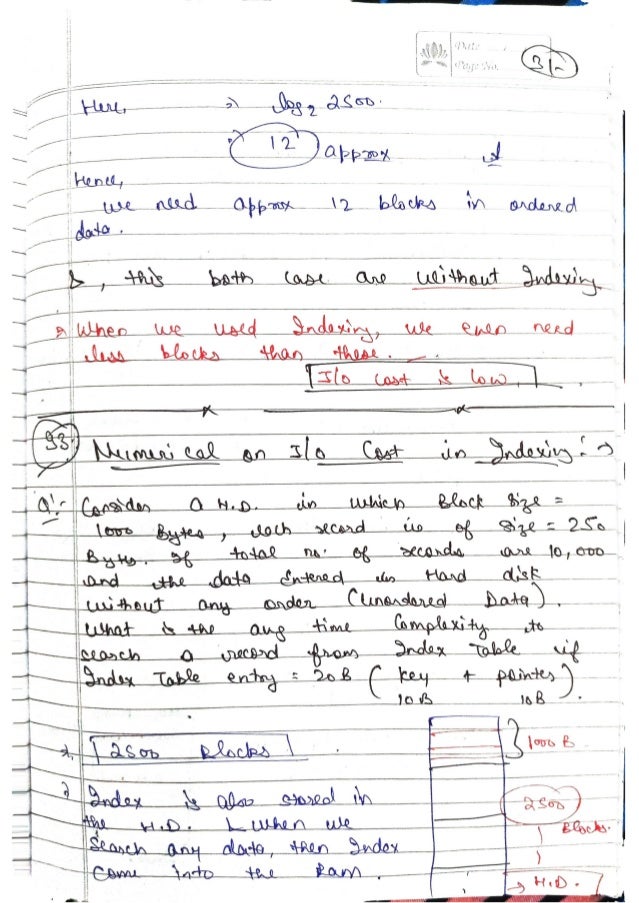 Date
Page No.
31
Here, ⇒ log₂ 2500.
12 approx
Hence,
we need approx 12 blocks in ordered
data.
, this both case are without Indexing
When we used Indexing, we even need
less blocks than these.
I/o cost is low.
93 Numerical on I/o Cost in Indexing :→
Q:- Consider a H.D. in which Block size =
1000 Bytes, each record is of size = 250
Bytes. If total no. of records are 10,000
and the data Entered in Hard disk
without any order (Unordered Data).
What is the avg time Complexity to
search a record from Index Table if
Index Table entry = 20B (key + pointer).
10B 10B
2500 Blocks
1000 B
Index is also stored in
the H.D. when we
Search any data, then Index
Come into the Ram.
2500
Blocks.
→ H.D.